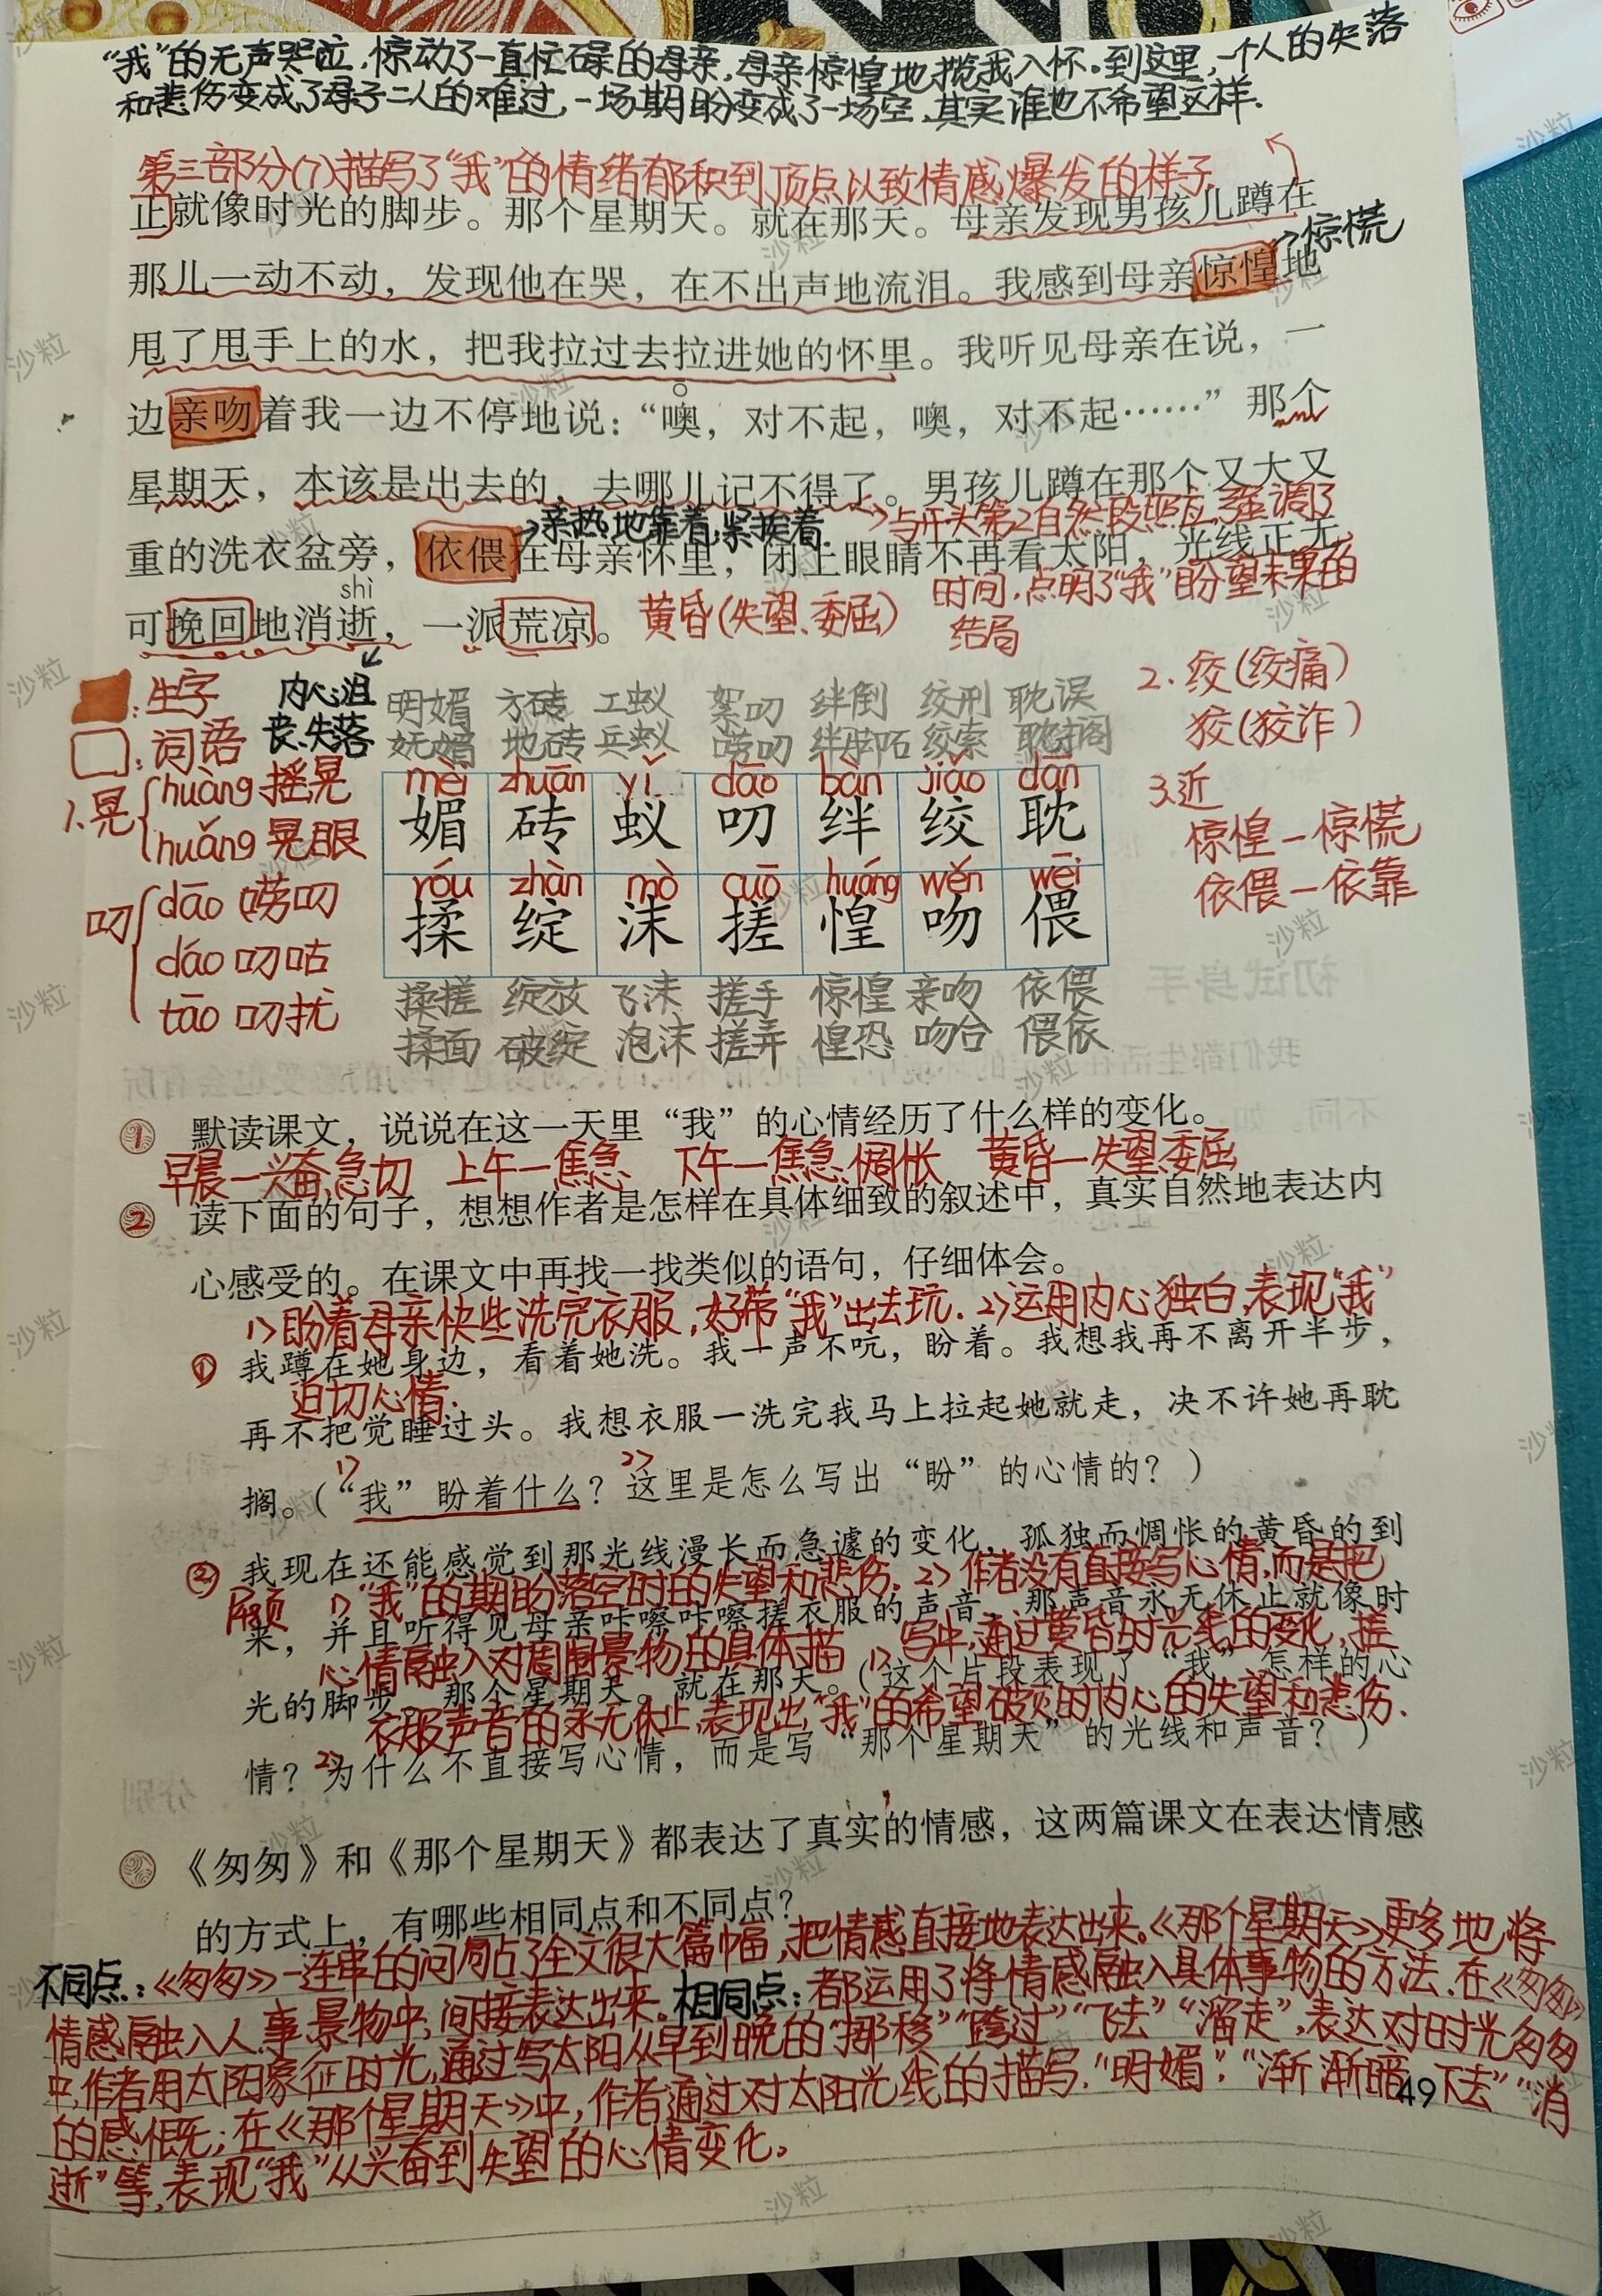 “我”的无声哭泣,惊动了一直忙碌的母亲,母亲惊惶地揽我入怀。到这里,一个人的失落
和悲伤变成了母子二人的难过,一场期盼变成了一场空,其实谁也不希望这样.
第三部分(7)描写了“我”的情绪郁积到顶点以致情感爆发的样子.
正就像时光的脚步。那个星期天。就在那天。母亲发现男孩儿蹲在
→惊慌
那儿一动不动，发现他在哭，在不出声地流泪。我感到母亲惊惶地
甩了甩手上的水，把我拉过去拉进她的怀里。我听见母亲在说，一
边亲吻着我一边不停地说：“噢，对不起，噢，对不起……”那个
星期天，本该是出去的，去哪儿记不得了。男孩儿蹲在那个又大又
→亲热地靠着,紧挨着.
→与开头第2自然段照应,强调了
重的洗衣盆旁，依偎在母亲怀里，闭上眼睛不再看太阳，光线正无
时间,点明了“我”盼望未果的
结局
shì
可挽回地消逝，一派荒凉。
黄昏(失望、委屈)
:生字
:词语
内心沮
丧、失落
明媚 方砖 工蚁 絮叨 绊倒 绞刑 耽误
妩媚 地砖 兵蚁 唠叨 绊脚石 绞索 耽搁
2.绞(绞痛)
狡(狡诈)
1.晃
huàng 摇晃
huǎng 晃眼
mèi zhuān yǐ dāo bàn jiǎo dān
媚 砖 蚁 叨 绊 绞 耽
3.近
惊惶—惊慌
依偎—依靠
叨
dāo 唠叨
dáo 叨咕
tāo 叨扰
róu zhàn mò cuō huáng wěn wēi
揉 绽 沫 搓 惶 吻 偎
揉搓 绽放 飞沫 搓手 惊惶 亲吻 依偎
揉面 破绽 泡沫 搓弄 惶恐 吻合 偎依
1 默读课文，说说在这一天里“我”的心情经历了什么样的变化。
早晨—兴奋,急切 上午—焦急 下午—焦急、惆怅 黄昏—失望、委屈
2 读下面的句子，想想作者是怎样在具体细致的叙述中，真实自然地表达内
心感受的。在课文中再找一找类似的语句，仔细体会。
1>盼着母亲快些洗完衣服,好带“我”出去玩. 2>运用内心独白,表现“我”
迫切心情.
① 我蹲在她身边，看着她洗。我一声不吭，盼着。我想我再不离开半步，
再不把觉睡过头。我想衣服一洗完我马上拉起她就走，决不许她再耽
1> 2>
搁。（“我”盼着什么？这里是怎么写出“盼”的心情的？）
② 我现在还能感觉到那光线漫长而急遽的变化，孤独而惆怅的黄昏的到
1>“我”的期盼落空时的失望和悲伤. 2>作者没有直接写心情,而是把
来，并且听得见母亲咔嚓咔嚓搓衣服的声音，那声音永无休止就像时
心情融入对周围景物的具体描
写中,通过黄昏时光线的变化,搓
光的脚步。那个星期天。就在那天。（这个片段表现了“我”怎样的心
衣服声音的永无休止,表现出“我”的希望破灭时内心的失望和悲伤.
2>
情？为什么不直接写心情，而是写“那个星期天”的光线和声音？）
《匆匆》和《那个星期天》都表达了真实的情感，这两篇课文在表达情感
的方式上，有哪些相同点和不同点？
不同点:《匆匆》一连串的问句占了全文很大篇幅,把情感直接地表达出来。《那个星期天》更多地,将
情感融入人、事、景物中,间接表达出来。相同点:都运用了将情感融入具体事物的方法.在《匆匆》
中,作者用太阳象征时光,通过写太阳从早到晚的“挪移”“跨过”“飞去”“溜走”,表达对时光匆匆
的感慨;在《那个星期天》中,作者通过对太阳光线的描写.“明媚”,“渐渐暗下去”“消
逝”等,表现“我”从兴奋到失望的心情变化。
49